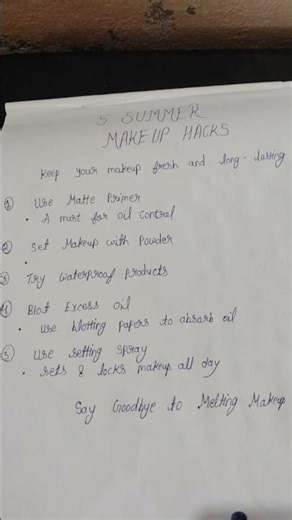 5 SUMMER
MAKEUP HACKS
Keep your makeup fresh and long-lasting
① Use Matte Primer
• A must for oil control
② Set Makeup with Powder
•
③ Try Waterproof Products
④ Blot Excess oil
• Use blotting papers to absorb oil
⑤ Use setting spray
• sets & locks makeup all day
Say Goodbye to Melting Makeup